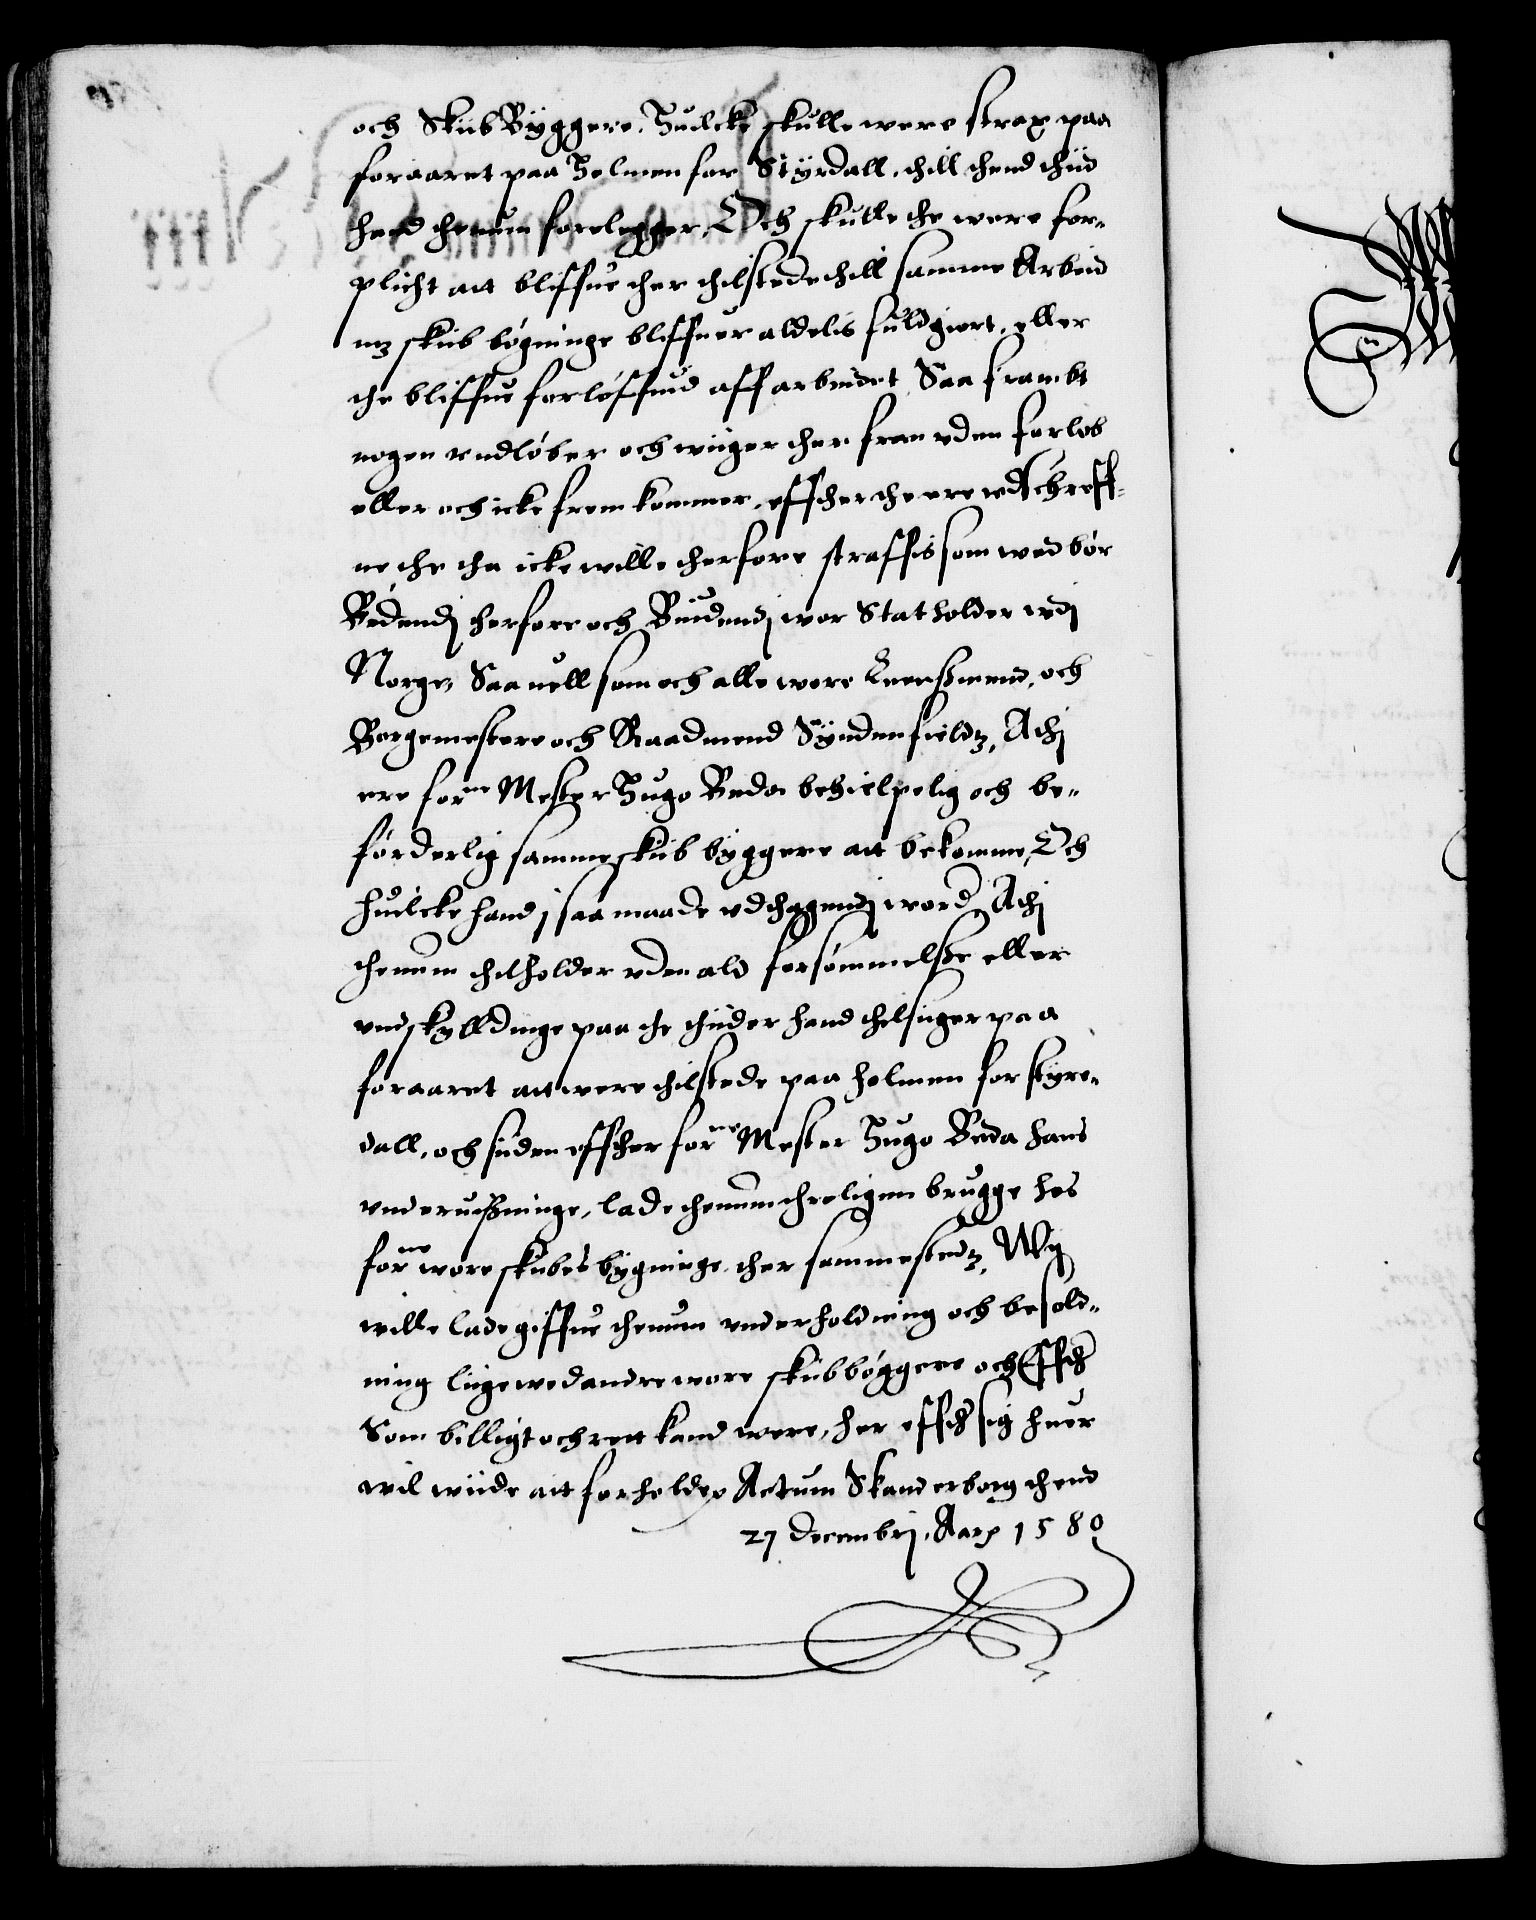 och Skiib Byggere, Huilcke skulle were strax paa
foraaret paa Holmen for Styrdall, thill thend thiid
hand thennum forelegger, Och skulle the were for-
plicht att bliffue ther thilstede thill samme Arbeid
mz skiib bygninge bliffuer aldelis fuldgiort, eller
the bliffue forløffuid aff arbeidet, Saa frambt
nogen rndløber och wiiger ther fran vden forlob
eller och icke fremkommer, effther the ere wdschreff-
ne the tha icke wille therfore straffis som wed bør
Bedendj therfore och Biudendj wor Statholder vdj
Norge, Saa uell som och alle wore Leenßmend, och
Borgemestere och Raadmend Syndenfieldz, Athj
ere forne Mester Hugo Beda behielpelig och be-
førderlig samme skiib byggere att bekomme, Och
huilcke hand i saa maade vdthagendj word, Athj
thennum thilholder vden ald forsømmelße eller
vndskylldinge paa the thiider hand thilsiiger paa
foraaret att were thilstede paa holmen for styre-
dall, och siiden effther forne Mester Hugo Beda hans
vnderuißninge, lade thennum throligenn brugge hos
forne wore skiibes bygninge ther sammestedz, Wij
wille lade giffue thennum vnderholdning och besold-
ning liigewed andre wore skiibbyggere och Effther
Som billigt och rett kand were, her effther sig huer
wil wiide att forholde, Actum Skanderborg thend
27 decembrj, Aar 1580